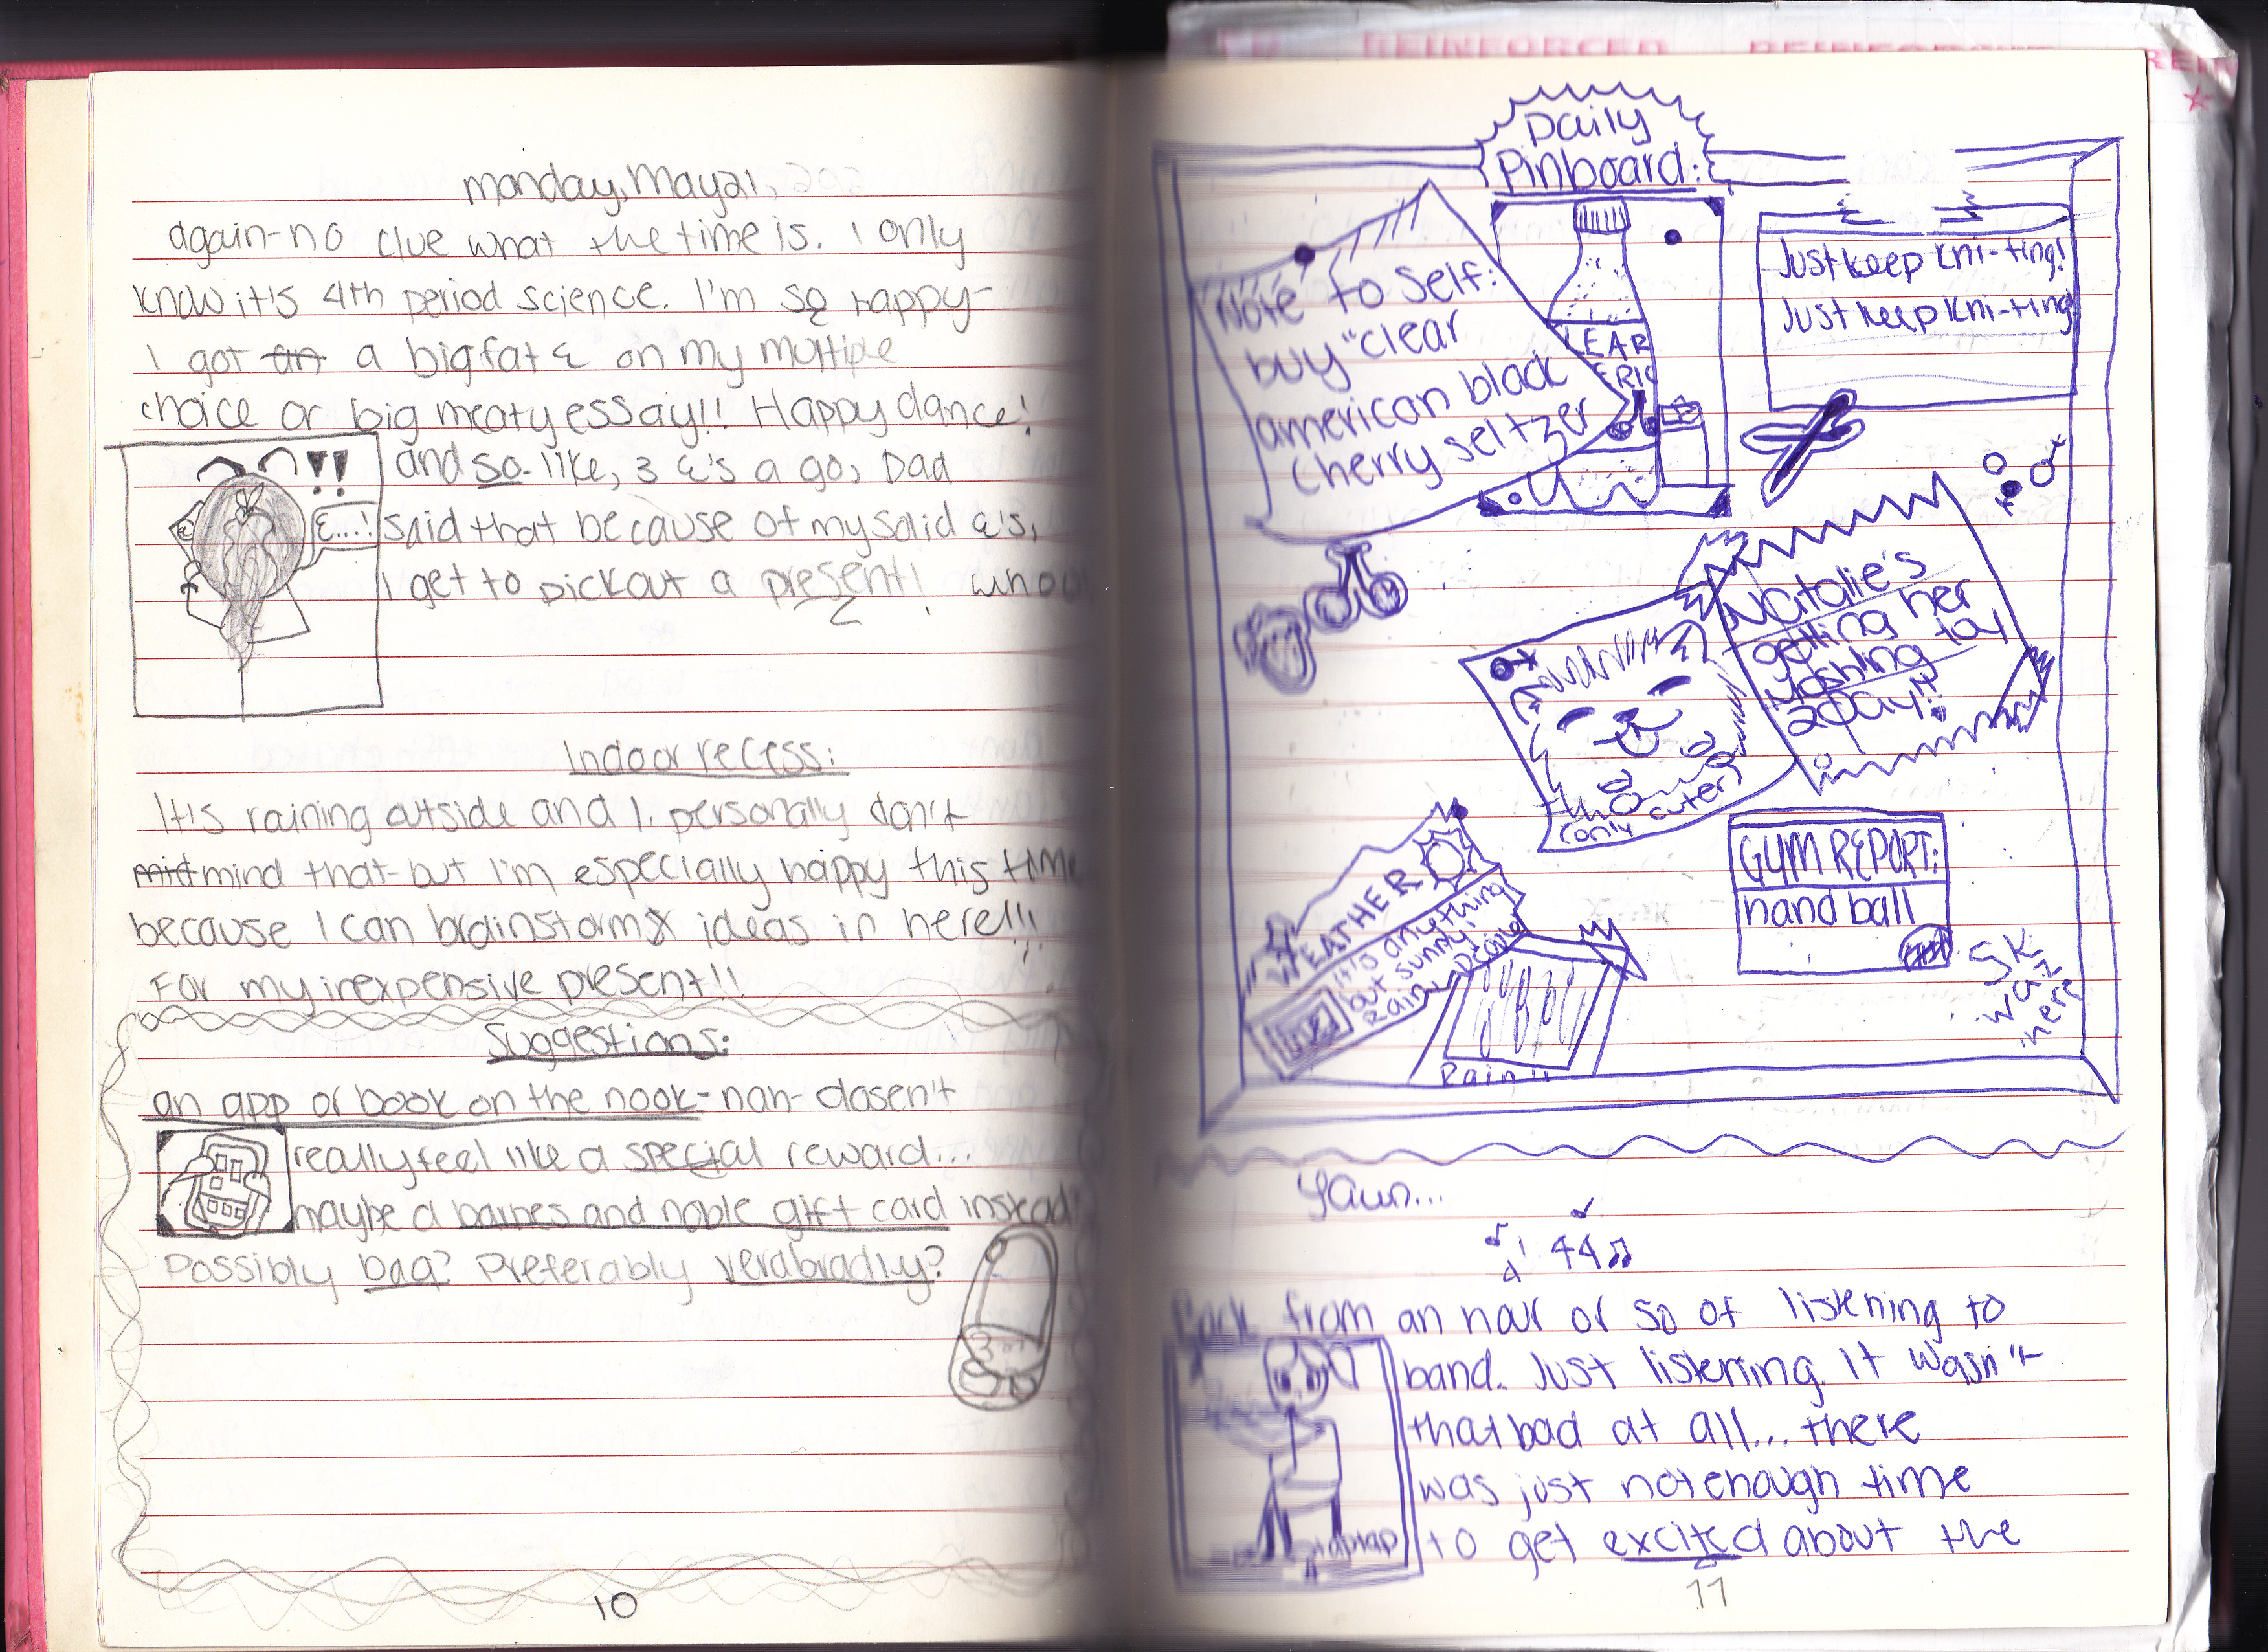 monday, May 21,
again-no clue what the time is. I only
know it's 4th period science. I'm so happy-
I got an a big fat ε on my multiple
choice or big meaty essay!! Happy dance!
and so- like, 3 ε's a go, Dad
!!
ε...!
said that because of my solid ε's,
I get to pick out a present! whoo
Indoor recess:
It's raining outside and I, personally don't
mid mind that-but I'm especially happy this time
because I can brainstorm ideas in here!!!
For my inexpensive present!!
Suggestions:
an app or book on the nook-nah- dosen't
really feel like a special reward...
maybe a barnes and noble gift card instead?
Possibly bag? Preferably verabradly?
10
REINFORCED
Daily
Pinboard:
Note to self:
buy "clear
american black
cherry seltzer
LEAR
ERIC
Just keep kni-ting!
Just keep kni-ting
Natalie's
getting her
toy
2day!!
(only cuter)
WEATHER
it's anything
but sunny!
Rain,
Rain!!
GYM REPORT:
hand ball
SK
waz
here
Yawn...
Back from an hour or so of listening to
band. Just listening. It wasn't
that bad at all... there
was just not enough time
taptap
to get excited about the
11